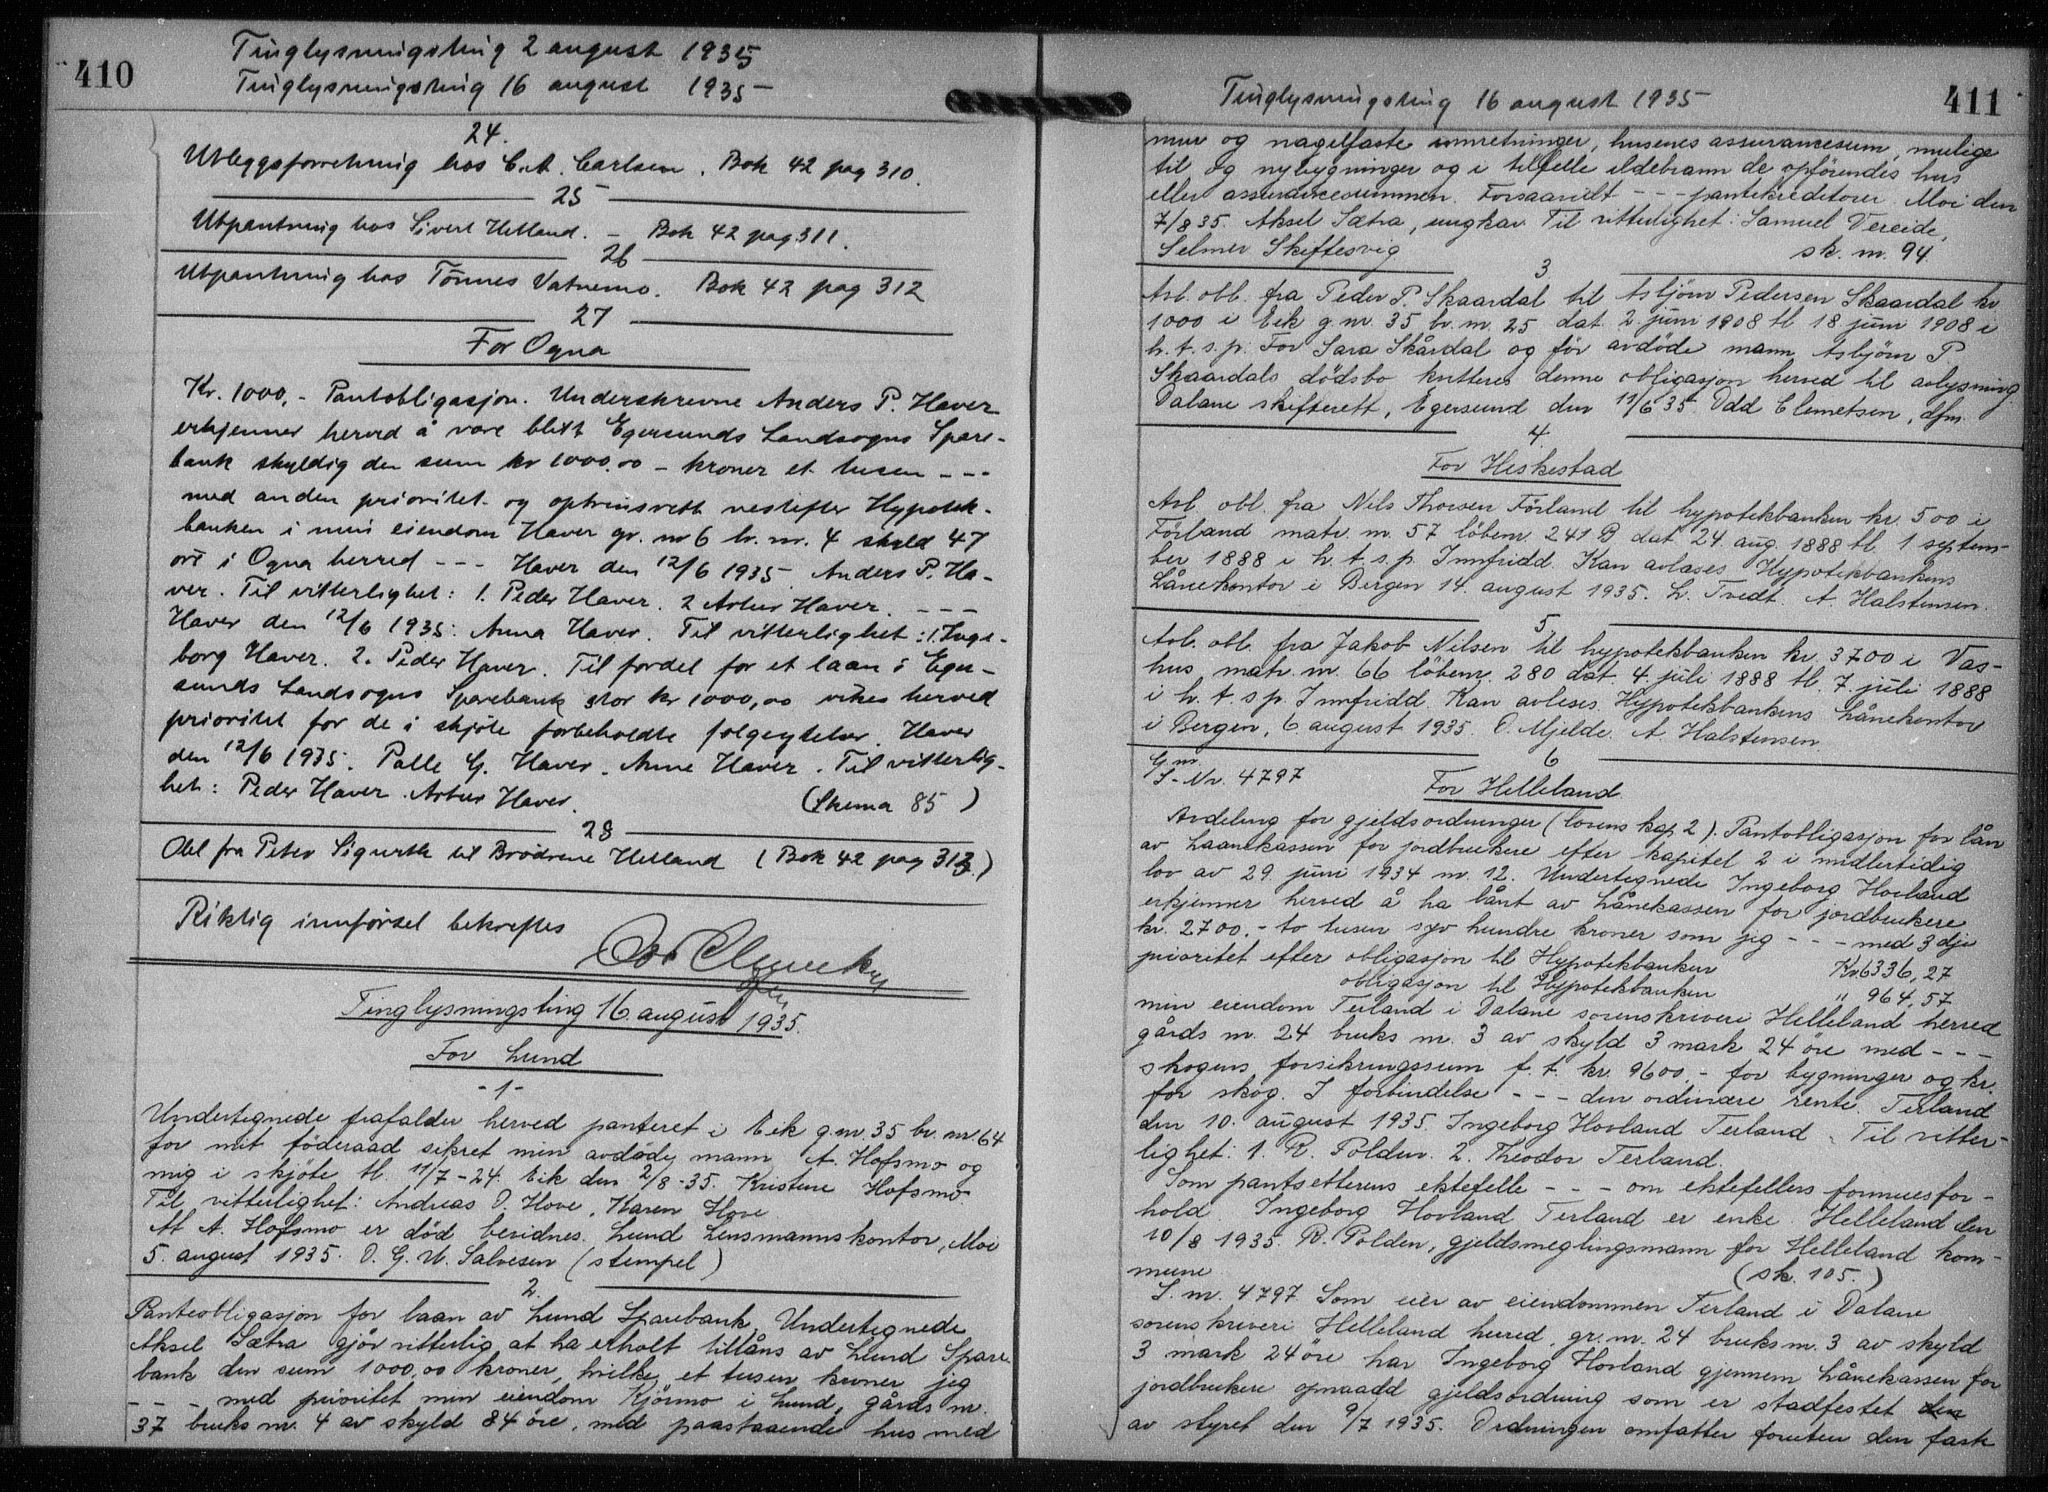 410
Tinglysningsting 2 august 1935
Tinglysningsting 16 august 1935
24.
Utleggsforretning hos C. A. Carlsen. Bok 42 pag 310.
25
Utpantning hos Sivert Helland. - Bok 42 pag 311.
26
Utpantning hos Tönnes Vatnemo. Bok 42 pag 312
27
For Ogna
Kr. 1000,- Pantobligasjon. Underskrevne Anders P. Haver
erkjenner herved å være blitt Egersunds Landsogns Spare-
bank skyldig den sum kr 1000.00 - kroner et tusen ---
med anden prioritet og optrinsrett nestefter Hypotek-
banken i min eiendom Haver gr. nr 6 br. nr. 4 skyld 47
øre i Ogna herred --- Haver den 12/6 1935 Anders P. Ha-
ver. Til vitterlighet: 1. Peder Haver. 2 Artur Haver. ---
Haver den 12/6 1935: Anna Haver. Til vitterlighet: 1. Inge-
borg Haver. 2. Peder Haver. Til fordel for et laan i Eger-
sunds Landsogns Sparebank stor kr 1000,00 vikes herved
prioritet for de i skjöte forbeholdte følgeytelser. Haver
den 12/6 1935. Palle G. Haver. Anne Haver. Til vitterlig-
het: Peder Haver. Artur Haver. (Skema 85)
28
Obl fra Peter Sigurth til Brødrene Helland (Bok 42 pag 313.)
Riktig innførsel bekreftes
Tinglysningsting 16. august 1935.
For Lund
-1-
Undertegnede frafalder herved panteret i Eik g.nr. 35 br. nr 64
for mit föderaad sikret min avdöde mann A. Hofsmo og
mig i skjöte tl. 11/7-24. Eik den 2/8-35. Kristine Hofsmo.
Til vitterlighet: Andreas O. Hove, Karen Hove
At A. Hofsmo er död bevidnes. Lund Lensmannskontor, Moi
5. august 1935. O. G. U. Salvesen (stempel)
2.
Panteobligasjon for laan av Lund Sparebank. Undertegnede
Aksel Sætra gjör vitterlig at ha erholt tillåns av Lund Spare
bank den sum 1000,00 kroner, hvilke et tusen kroner jeg
--- med prioritet min eiendom Kjörmo i Lund, gårds nr.
37 bruks nr. 4 av skyld 84 öre, med paastaaende hus med
411
Tinglysningsting 16 august 1935
mur og nagelfaste innretninger, husenes assurancesum, mulige
til og nybygninger og i tilfelle ildebrann de opförendes hus
eller assurancesummen. Forsaavidt --- pantekreditorer. Moi den
7/8 35. Aksel Sætra, ungkar. Til vitterlighet: Samuel Vereide,
Selmer Skiftesvig sk. nr. 94
3
Avl. obl. fra Peder P. Skaardal til Asbjörn Pedersen Skaardal kr
1000 i Eik g.nr. 35 br. nr. 25 dat. 2 juni 1908 tl 18 juni 1908 i
h. t. s. p. For Sara Skårdal og för avdöde mann Asbjörn P.
Skaardals dödsbo kvitteres denne obligasjon herved til avlysning
Dalane skifterett, Egersund den 11/6 35. Odd Clemetsen, dfm.
4.
For Heskestad
Avl. obl. fra Nils Thorsen Förland til hypotekbanken kr. 500 i
Förland matr. nr. 57 löbenr. 241 B dat. 24. aug. 1888 tl. 1 septem-
ber 1888 i h. t. s. p. Innfridd. Kan avlases. Hypotekbankens
Lånekontor i Bergen 14. august 1935. L. Tvedt. A. Halstensen.
5
Avl. obl. fra Jakob Nilsen til hypotekbanken kr. 3700 i Vas-
hus matr. nr. 66 löbenr. 280 dat. 4. juli 1888 tl. 7. juli 1888
i h. t. s. p. Innfridd. Kan avleses. Hypotekbankens Lånekontor
i Bergen, 6 august 1935. O. Mjelde. A. Halstensen.
6
G.nr.
S-Nr. 4797 For Helleland
Avdeling for gjeldsordninger (lovens kap 2). Pantobligasjon for lån
av Laanekassen for jordbrukere efter kapitel 2 i midlertidig
lov av 29. juni 1934 nr. 12. Undertegnede Ingeborg Hovland
erkjenner herved å ha lånt av Lånekassen for jordbrukere
kr. 2700.- to tusen syv hundre kroner som jeg --- med 3dje
prioritet efter obligasjon til Hypotekbanken Kr. 6336,27
obligasjon til Hypotekbanken " 964,57
min eiendom Terland i Dalane sorenskriveri Helleland herred
gårds nr. 24 bruks nr. 3 av skyld 3 mark 24 öre med ---
skogens forsikringssum f. t. kr. 9600.- for bygninger og kr.
for skog. I forbindelse --- den ordinære rente. Terland
den 10. august 1935. Ingeborg Hovland Terland. Til vitter-
lighet: 1. R. Polden. 2. Theodor Terland.
Som pantsetterens ektefelle --- om ektefellers formuesfor-
hold. Ingeborg Hovland Terland er enke. Helleland den
10/8 1935. R. Polden, gjeldsmeglingsmann for Helleland kom-
mune. (sk. 105.)
S. nr. 4797 Som eier av eiendommen Terland i Dalane
sorenskriveri Helleland herred, gr. nr. 24 bruks nr. 3 av skyld
3 mark 24 öre har Ingeborg Hovland gjennem Lånekassen for
jordbrukere opnaadd gjeldsordning som er stadfestet den
av styret den 9/7 1935. Ordningen omfatter foruten den fast